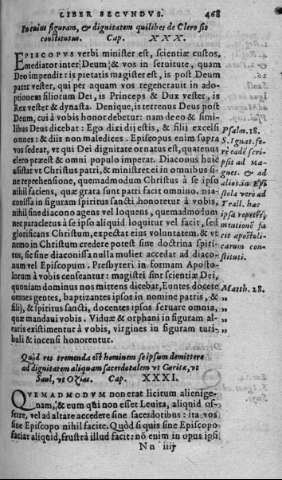 LIBER SECVNDVS. 468
In cuius figuram, & dignitatem quilibet de Clero sit
constitutus. Cap. XXX.
EPISCOPVS verbi minister est, scientiæ custos,
mediator inter Deum & vos in seruitute, quam
Deo impendit: is pietatis magister est, is post Deum
pater vester, qui per aquam vos regenerauit in ado-
ptionem filiorum Dei, is Princeps & Dux vester, is
Rex vester & dynasta. Denique, is terrenus Deus post
Deum, cui à vobis honor debetur: nam de eo & simi-
libus Deus dicebat: Ego dixi dij estis, & filij excelsi
omnes: & diis non maledices. Episcopus enim supra
vos sedeat, vt qui Dei dignitate ornatus est, quatenus
clero præest & omni populo imperat. Diaconus huic
assistat vt Christus patri, & ministret ei in omnibus si-
ne reprehensione, quemadmodum Christus à se ipso
nihil faciens, quæ grata sunt patri facit omnino. Dia-
conissa in figuram spiritus sancti honoretur à vobis,
nihil sine diacono agens vel loquens, quemadmodum
nec paracletus à se ipso aliquid loquitur vel facit, sed
glorificans Christum, expectat eius voluntatem. & vt
nemo in Christum credere potest sine doctrina spiri-
tus, sic sine diaconissa nulla mulier accedat ad diaco-
num vel Episcopum. Presbyteri in formam Aposto-
lorum à vobis censeantur: magistri sint scientiæ Dei,
quoniam dominus nos mittens dicebat, Euntes docete
omnes gentes, baptizantes ipsos in nomine patris, &
filij, & spiritus sancti, docentes ipsos seruare omnia,
quæ mandaui vobis. Viduæ & orphani in figuram al-
taris existimentur à vobis, virgines in figuram turibuli
& incensi honorentur.
Psalm. 18.
S. Ignat. fe-
ad Ma-
gnes. & ad
Trall. hæc
ipsa repetit,
Matth. 28.
Quòd res tremenda est hominem se ipsum demittere
ad dignitatem aliquam sacerdotalem vt Coritæ, vt
Saul, vt Ozias. Cap. XXXI.
QVEMADMODVM non erat licitum alienige-
nam, & eum qui non esset Leuita, aliquid of-
ferre, vel ad altare accedere sine sacerdotibus: ita vos
sine Episcopo nihil facite. Quòd si quis sine Episcopo
faciat aliquid, frustrà illud facit: nō enim in opus ipsi
Nn iiij